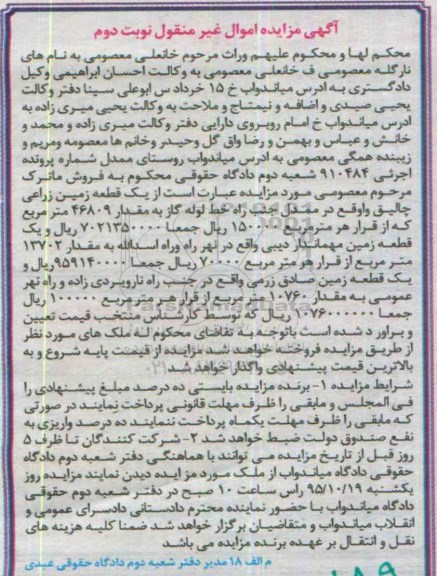 آگهی مزایده اموال غیر منقول نوبت دوم
محکم لها و محکوم علیهم وراث مرحوم خانعلی معصومی به نام های
نارگله معصومی ف خانعلی معصومی به وکالت احسان ابراهیمی وکیل
دادگستری به ادرس میاندواب خ ۱۵ خرداد س ابوعلی سینا دفتر وکالت
یحیی صیدی و اضافه و نیمتاج و ملاحت به وکالت یحیی میری زاده به
ادرس میاندواب خ امام روبروی دارایی دفتر وکالت میری زاده و محمد و
خانش و عباس و بهمن و رضا واق گل وحیدر وخانم ها معصومه ومریم و
زیبنده همگی معصومی به ادرس میاندواب روستای ممدل شماره پرونده
اجرئی ۹۱۰۴۸۴ شعبه دوم دادگاه حقوقی محکوم به فروش ماترک
مرحوم معصومی مورد مزایده عبارت است از یک قطعه زمین زراعی
چالیق واوقع در ممدل جنب راه خط لوله گاز به مقدار ۴۶۸۰۹ متر مربع
که از قرار هر مترمربع ۱۵۰۰۰۰ ریال جمعا ۷۰۲۱۳۵۰۰۰۰ ریال و یک
قطعه زمین مهماندار دیبی واقع در نهر راه وراه اسدالله به مقدار ۱۳۷۰۲
متر مربع از قرار هر متر مربع ۷۰۰۰۰ ریال جمعا ۹۵۹۱۴۰۰۰۰ ریال و
یک قطعه زمین صادق زرمی واقع در جنب راه ناروبردی زاده و راه نهر
عمومی به مقدار ۱۰۷۶۰ متر مربع از قرار هر متر مربع ۱۰۰۰۰۰ ریال
جمعا ۱۰۷۶۰۰۰۰۰۰ ریال که توسط کارشناس منتخب قیمت تعیین
و براور د شده است باتوجه به تقاضای محکوم له ملک های مورد نظر
از طریق مزایده فروخته خواهد شد مزایده از قیمت پایه شروع و به
بالاترین قیمت پیشنهادی واگذار خواهد شد
شرایط مزایده ۱- برنده مزایده بایستی ده درصد مبلغ پیشنهادی را
فی المجلس و مابقی را ظرف مهلت قانونی پرداخت نمایند در صورتی
که مابقی را ظرف مهلت یکماه پرداخت ننمایند ده درصد واریزی به
نفع صندوق دولت ضبط خواهد شد ۲- شرکت کنندگان تا ظرف ۵
روز قبل از تاریخ مزایده می توانند با هماهنگی دفتر شعبه دوم دادگاه
حقوقی دادگاه میاندواب از ملک مورد مز ایده دیدن نمایند مزایده روز
یکشنبه ۹۵/۱۰/۱۹ راس ساعت ۱۰ صبح در دفتر شعبه دوم حقوقی
دادگاه میاندواب با حضور نماینده محترم دادستانی دادسرای عمومی و
انقلاب میاندواب و متقاضیان برگزار خواهد شد ضمنا کلیه هزینه های
نقل و انتقال بر عهده برنده مزایده می باشد
م الف ۱۸ مدیر دفتر شعبه دوم دادگاه حقوقی عبدی